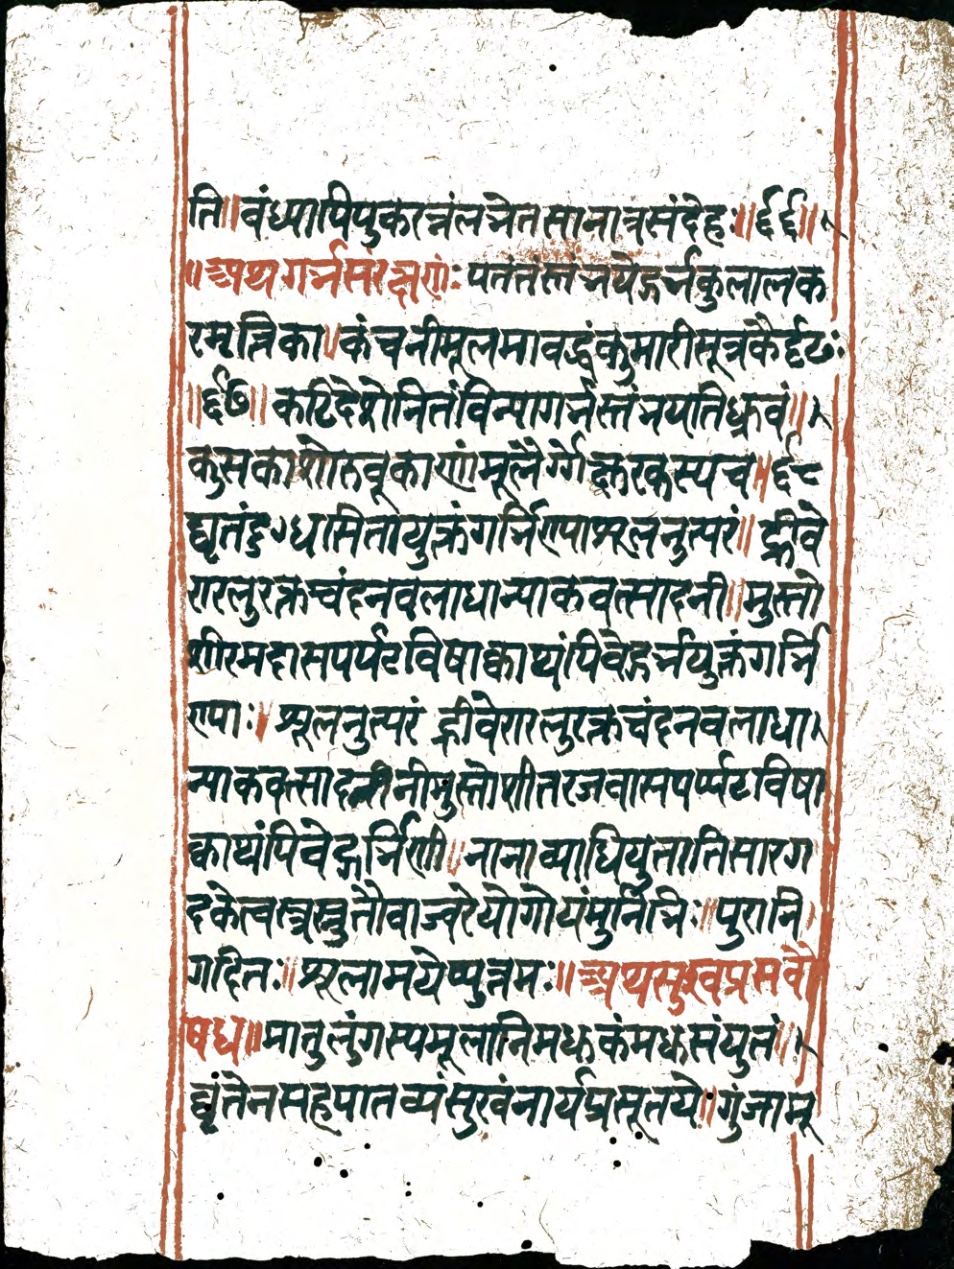 ति॥वंध्यापिपुकरत्नंलभेतसानात्रसंदेहः॥६६॥
॥अथगर्भसंरक्षणंः पतंतंस्तंभयेद्गर्भकुलालक
रमृत्तिका।कंचनीमूलमावद्धंकुमारीसूत्रकैर्दृढः
॥६७॥ कटिदेशेनितंविन्यागर्भस्तंभयतिध्रुवं॥
कुसकाशोरुवूकाणांमूलैर्ग्गोक्षुरकस्यच॥६८
घृतंदुग्धासितायुक्तंगर्भिण्याशूलनुत्परं॥ ह्रीवे
रारलुरक्तचंदनवलाधान्याकवत्सादनी॥मुस्तो
शीरमदासपर्पटविषाक्वाथंपिवेद्गर्भयुक्तंगर्भि
ण्याः। शूलनुत्परं ह्रीवेरारलुरक्तचंदनवलाधा
न्याकवत्सादनीनीमुस्तोशीतरजवासपर्प्पटविषा
क्वाथंपिवेद्गर्भिणी।नानाव्याधियुतातिसारग
दकेत्वस्रुतौवाज्वरेयोगोयंमुनिभिः॥पुरानि
गदितः॥शूलामयेप्युत्तमः॥अथसुखप्रसवौ
षध॥मातुलुंगस्यमूलानिमधुकंमधुसंयुतं॥
घृंतेनसहपातव्यंसुखंनार्यप्रसूतये॥गुंजामू